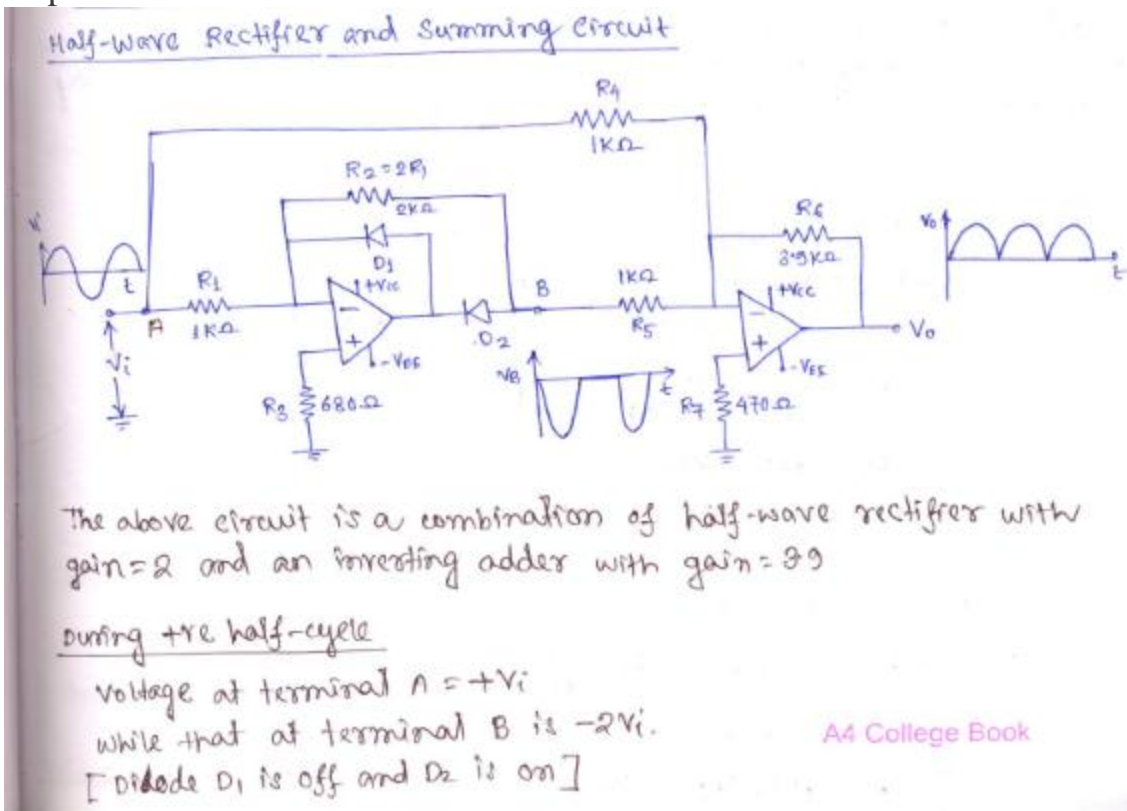 Half-Wave Rectifier and Summing Circuit
R4
1KΩ
R2 = 2R1
2KΩ
D1
Vi
t
R1
1KΩ
A
Vi
+Vcc
-VEE
R3
680Ω
D2
B
1KΩ
R5
VB
t
R6
3.9KΩ
+Vcc
-VEE
R7
470Ω
Vo
Vo
t
The above circuit is a combination of half-wave rectifier with
gain=2 and an inverting adder with gain=39
During +ve half-cycle
Voltage at terminal A = +Vi
while that at terminal B is -2Vi.
[Didode D1 is off and D2 is on]
A4 College Book